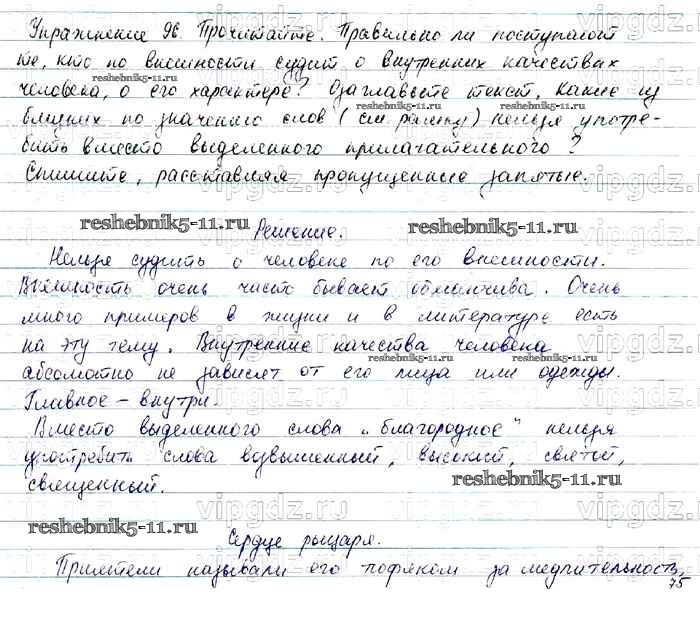 Упражнение 96. Прочитайте. Правильно ли поступают
те, кто по внешности судит о внутренних качествах
человека, о его характере? Озаглавьте текст. Какие из
близких по значению слов (см. рамку) нельзя употре-
бить вместо выделенного прилагательного?
Спишите, расставляя пропущенные запятые.
Решение.
Нельзя судить о человеке по его внешности.
Внешность очень часто бывает обманчива. Очень
много примеров в жизни и в литературе есть
на эту тему. Внутренние качества человека
абсолютно не зависят от его лица или одежды.
Главное – внутри.
Вместо выделенного слова „благородное" нельзя
употребить слова возвышенный, высокий, святой,
священный.
Сердце рыцаря.
Приятели называли его тюфяком за медлительность,
75
reshebnik5-11.ru
vipgdz.ru